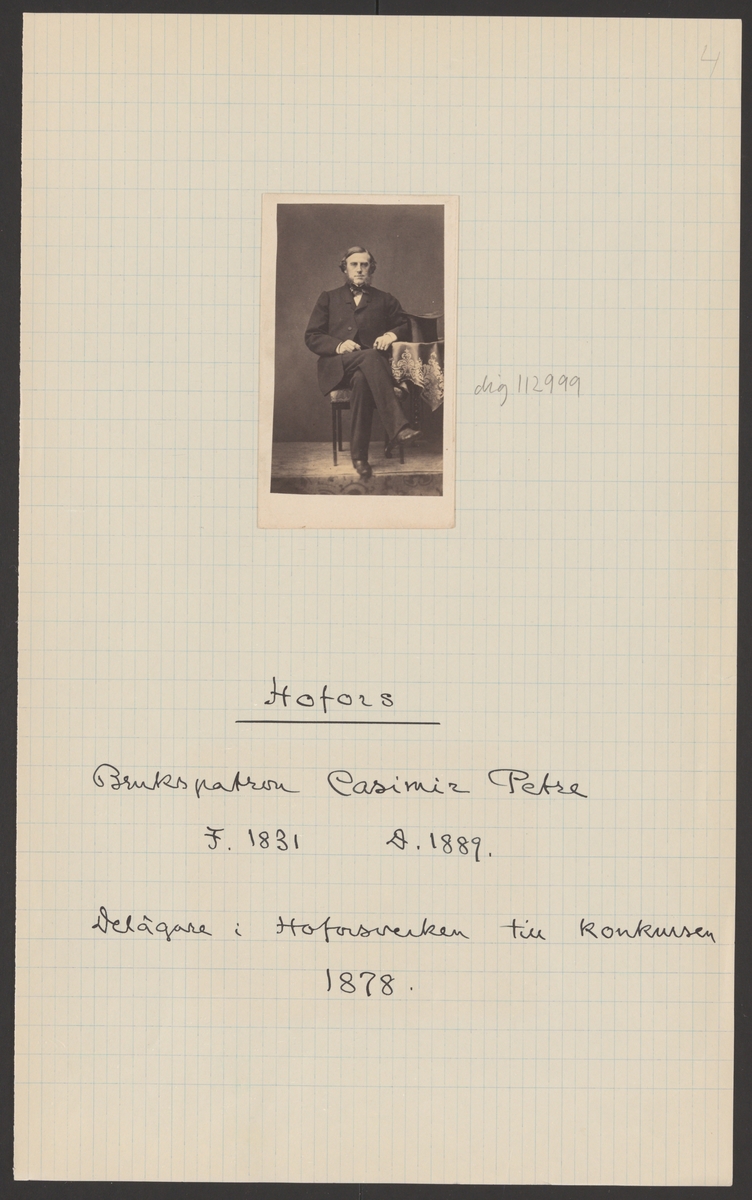 4
dig 112999
Hofors
Brukspatron Casimir Petre
F. 1831 D. 1889.
Delägare i Hoforsverken till konkursen
1878.